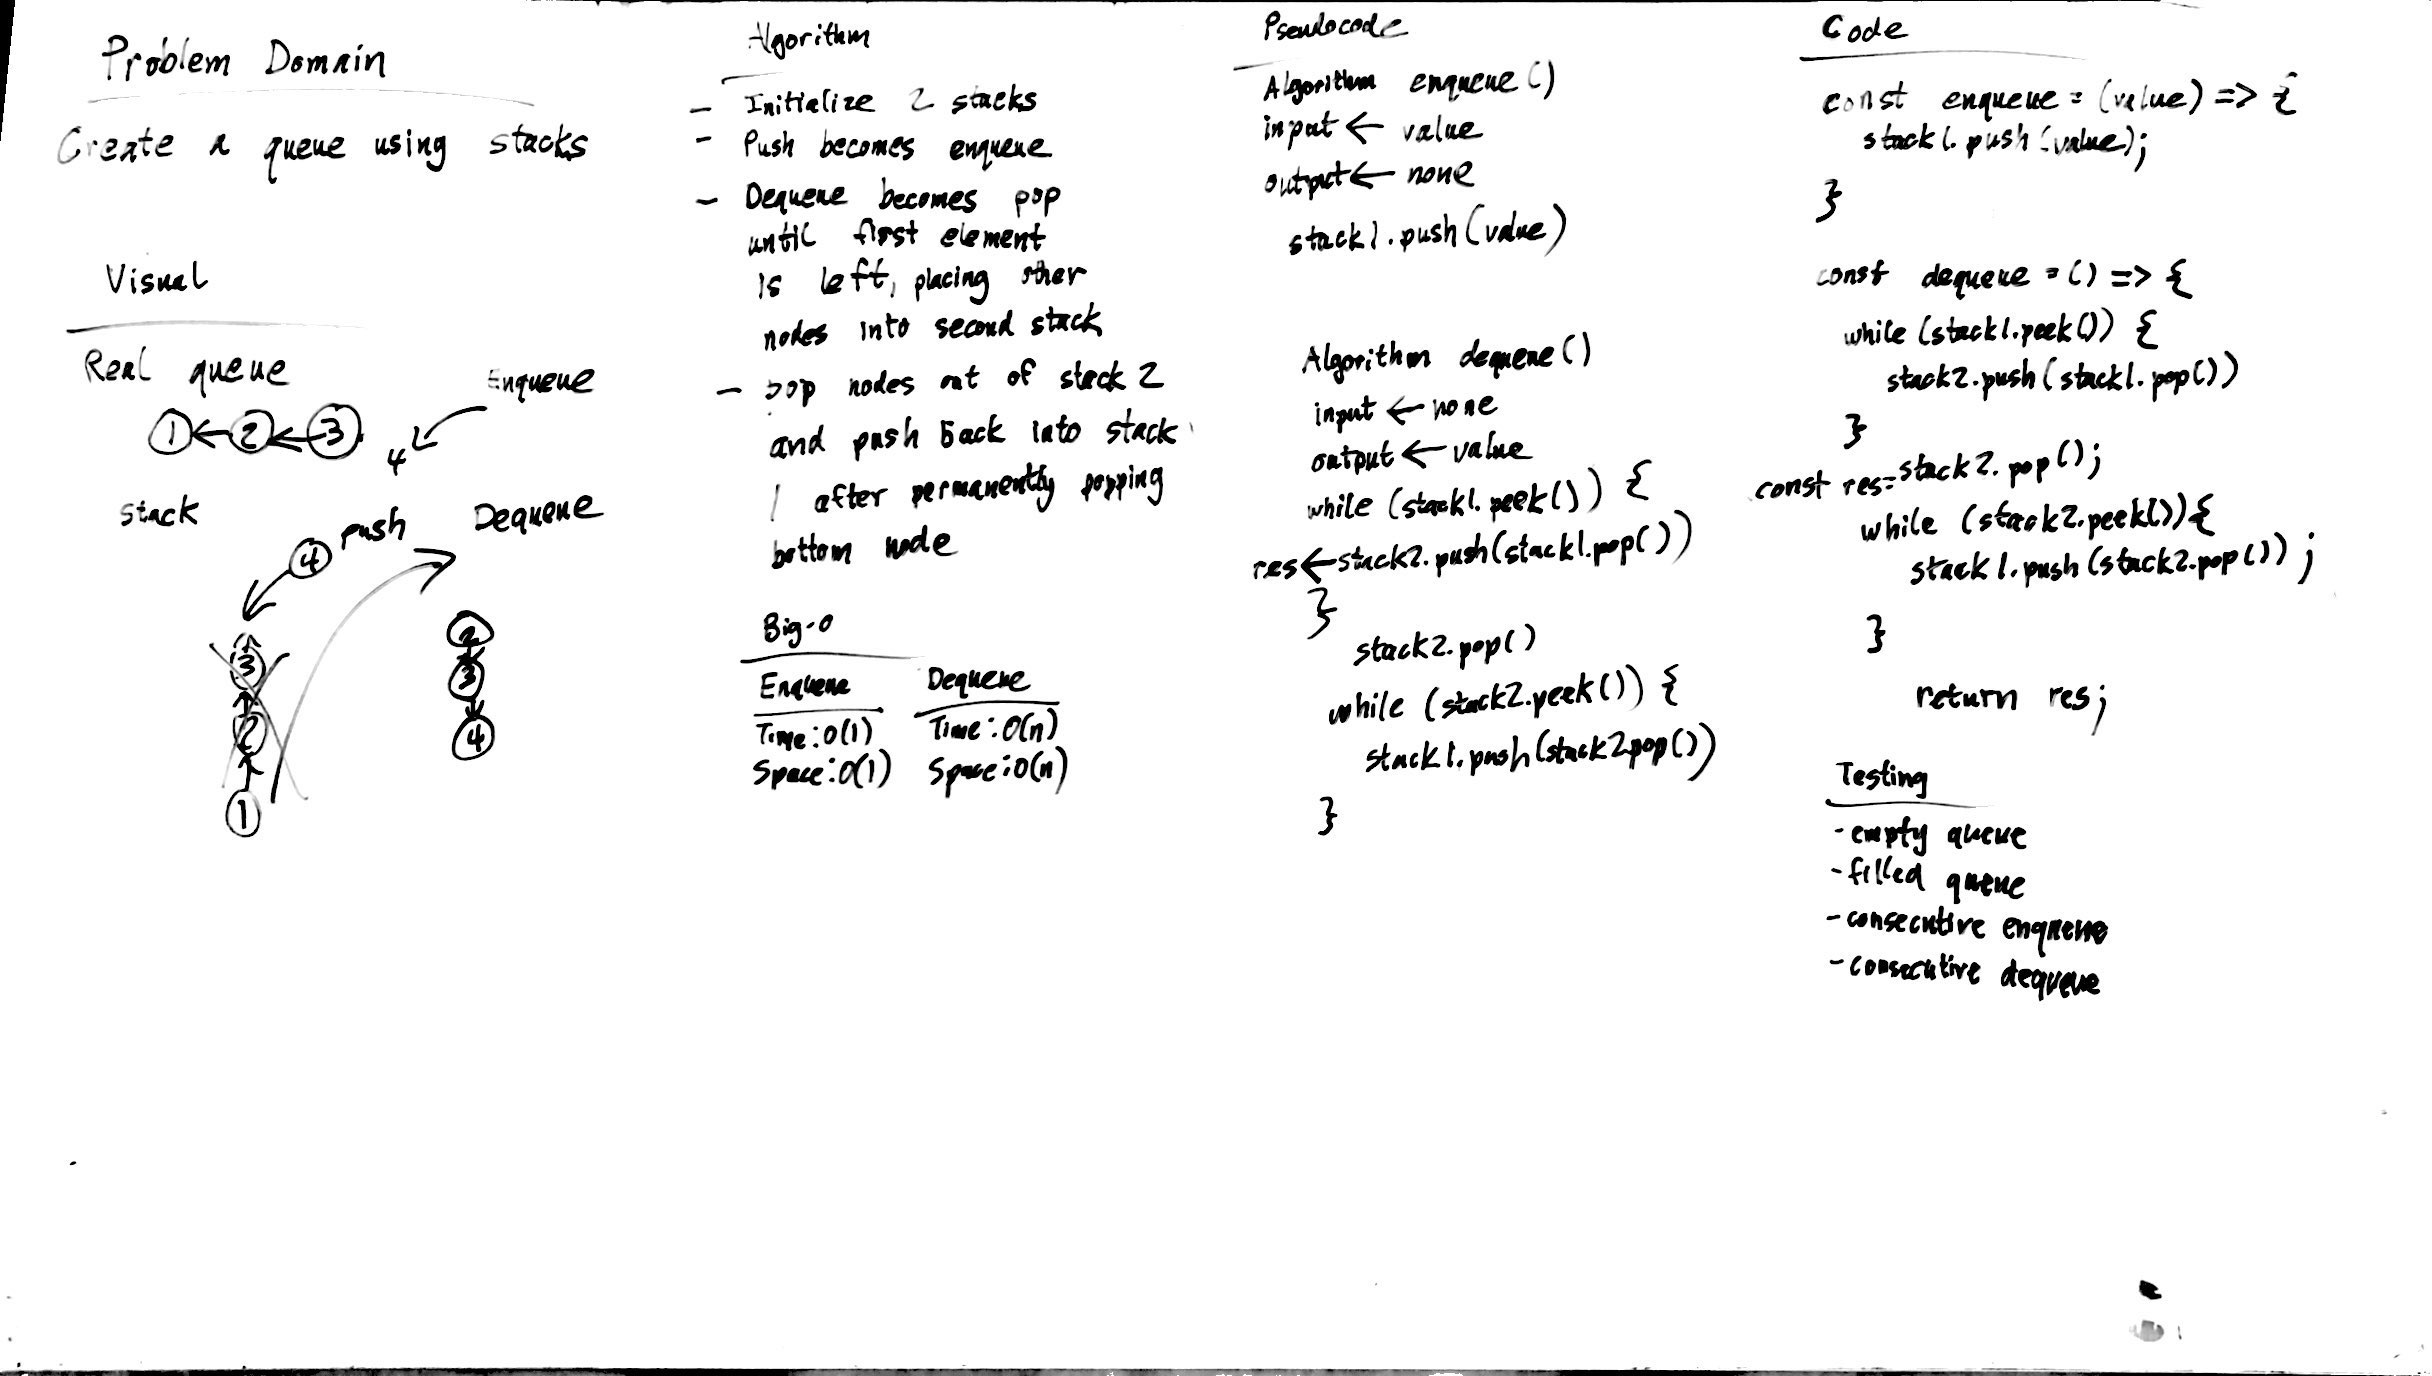 Problem Domain
Create a queue using stacks
Visual
Real queue
Enqueue
1 ← 2 ← 3
4
stack
push
Dequeue
4
3
2
1
2
3
4
Algorithm
- Initialize 2 stacks
- Push becomes enqueue
- Dequeue becomes pop
until first element
is left, placing other
nodes into second stack
- pop nodes out of stack 2
and push back into stack
1 after permanently popping
bottom node
Big-O
Enqueue
Time: O(1)
Space: O(1)
Dequeue
Time: O(n)
Space: O(n)
Pseudocode
Algorithm enqueue()
input ← value
output ← none
stack1.push(value)
Algorithm dequeue()
input ← none
output ← value
while (stack1.peek()) {
res ← stack2.push(stack1.pop())
}
stack2.pop()
while (stack2.peek()) {
stack1.push(stack2pop())
}
Code
const enqueue = (value) => {
stack1.push(value);
}
const dequeue = () => {
while (stack1.peek()) {
stack2.push(stack1.pop())
}
const res = stack2.pop();
while (stack2.peek()) {
stack1.push(stack2.pop());
}
return res;
Testing
- empty queue
- filled queue
- consecutive enqueue
- consecutive dequeue